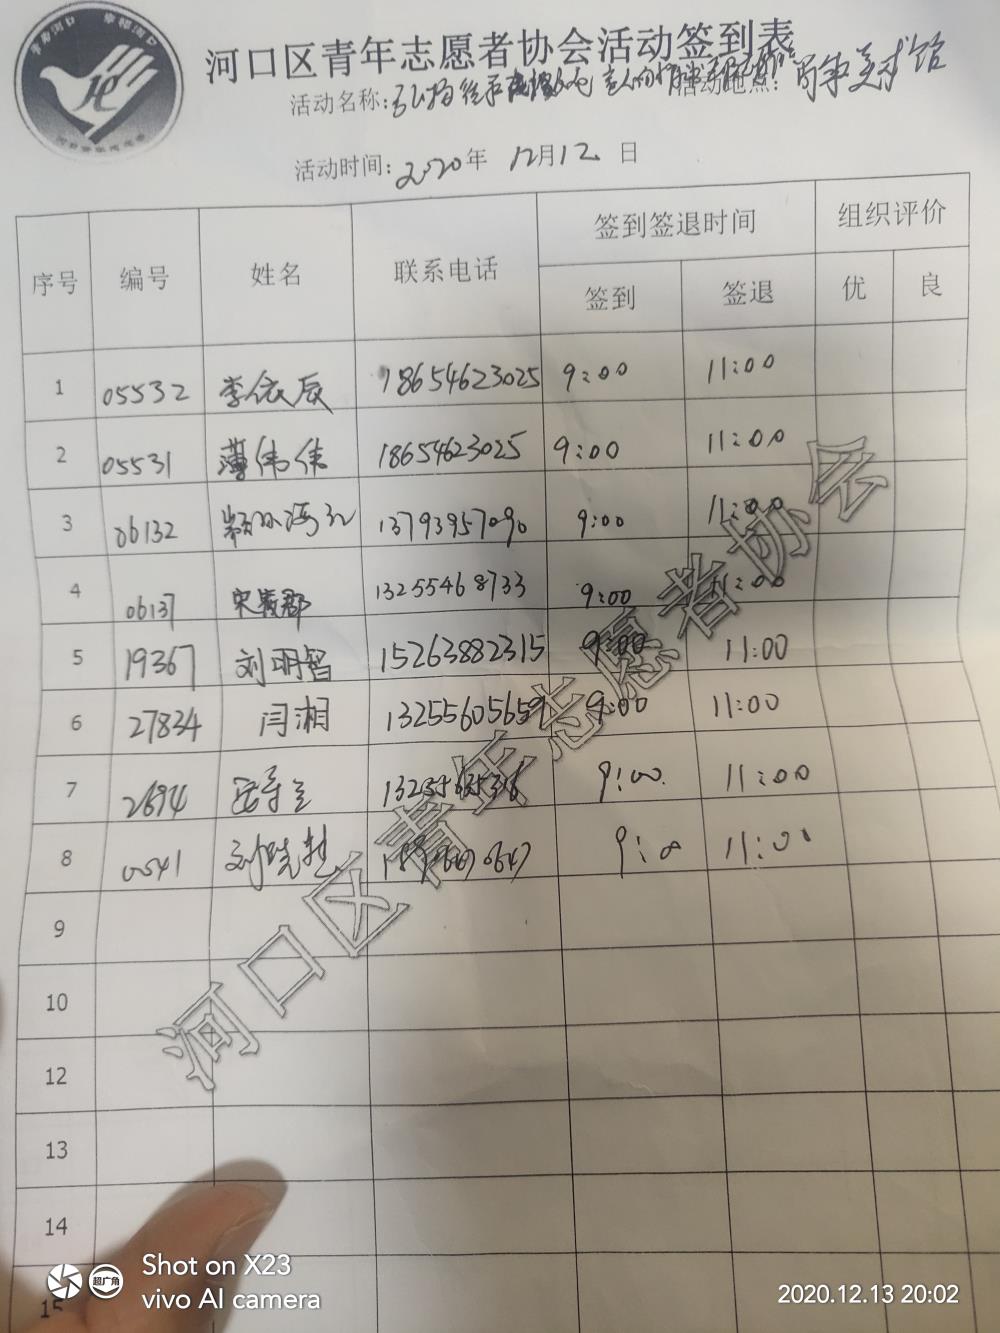 河口区青年志愿者协会活动签到表
活动名称: 活动地点: 美术馆
活动时间: 2020年 12月12 日
序号 编号 姓名 联系电话 签到签退时间 组织评价
签到 签退 优 良
1 05532 李依辰 18654623025 9:00 11:00
2 05531 薄伟伟 18654623025 9:00 11:00
3 06132 13793957090 9:00 11:00
4 06137 宋義郡 13255468733 9:00 11:00
5 19367 刘明智 15263882315 9:00 11:00
6 27834 闫湘 13255605659 9:00 11:00
7 2694 9:00 11:00
8 0541 刘晓 9:00 11:00
9
10
12
13
14
15
河口区青年志愿者协会
Shot on X23
超广角
vivo AI camera
2020.12.13 20:02